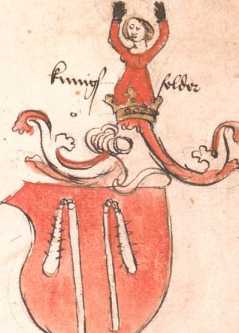 künigs felder